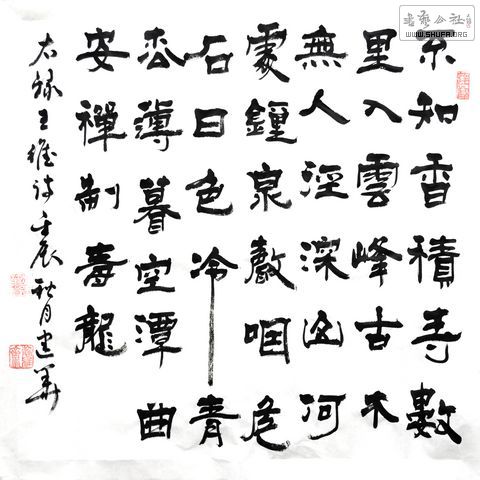 不知香積寺數
里入雲峰古木
無人徑深山何
處鐘泉聲咽危
石日色冷青
松薄暮空潭曲
安禪制毒龍
右録王維詩壬辰秋月建華
書藝公社
WWW.SHUFA.ORG